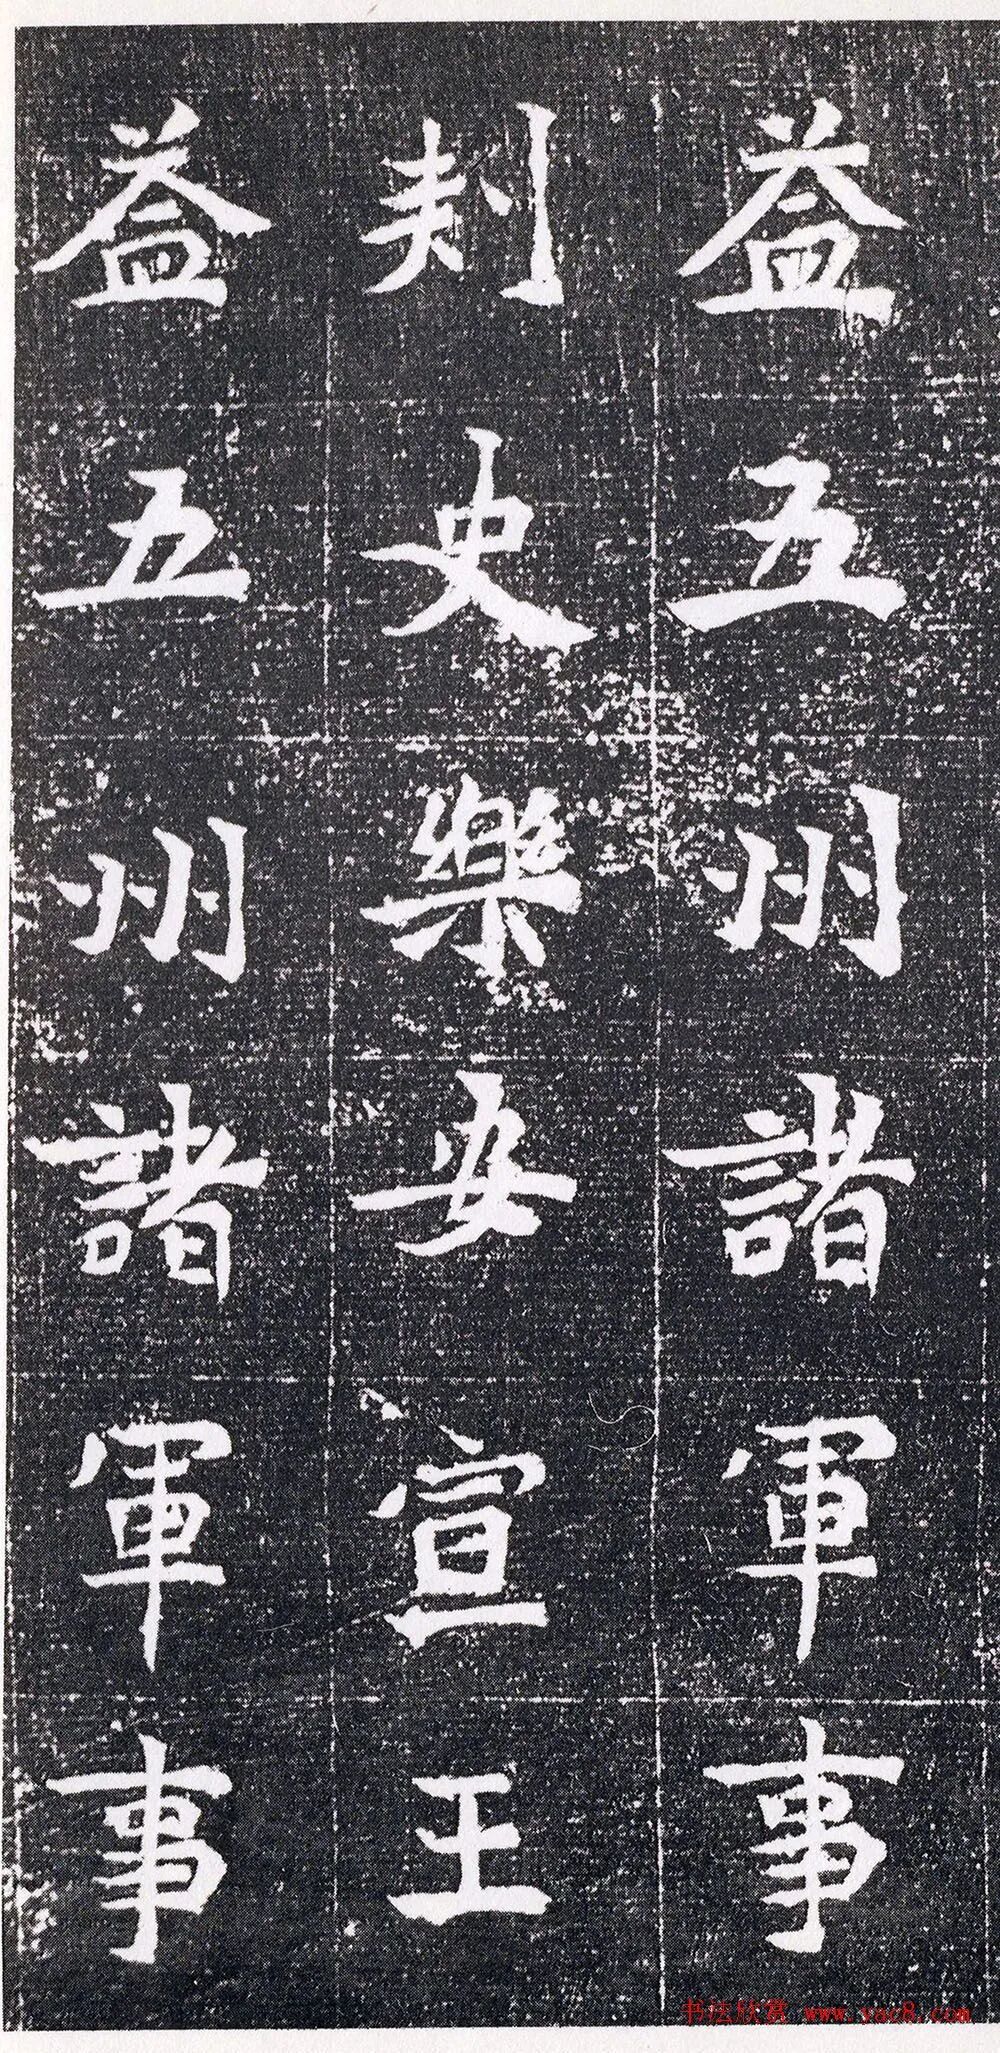 益五州諸軍事
刺史樂安宣王
益五州諸軍事
书法欣赏 www.yac8.com